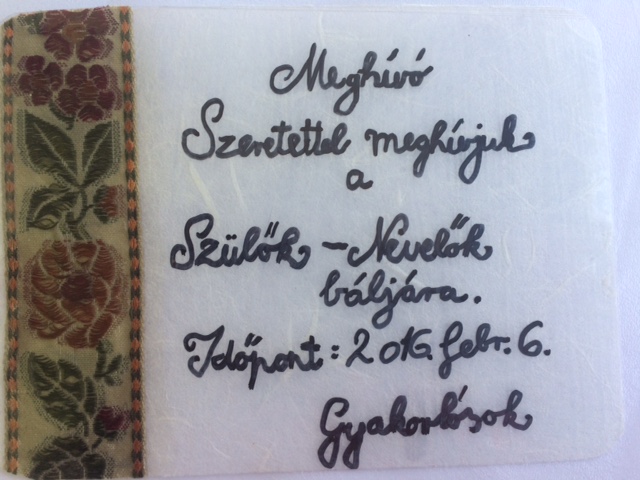 Meghívó
Szeretettel meghívjuk
a
Szülők - Nevelők
báljára.
Időpont: 2016. febr. 6.
Gyakorlósok